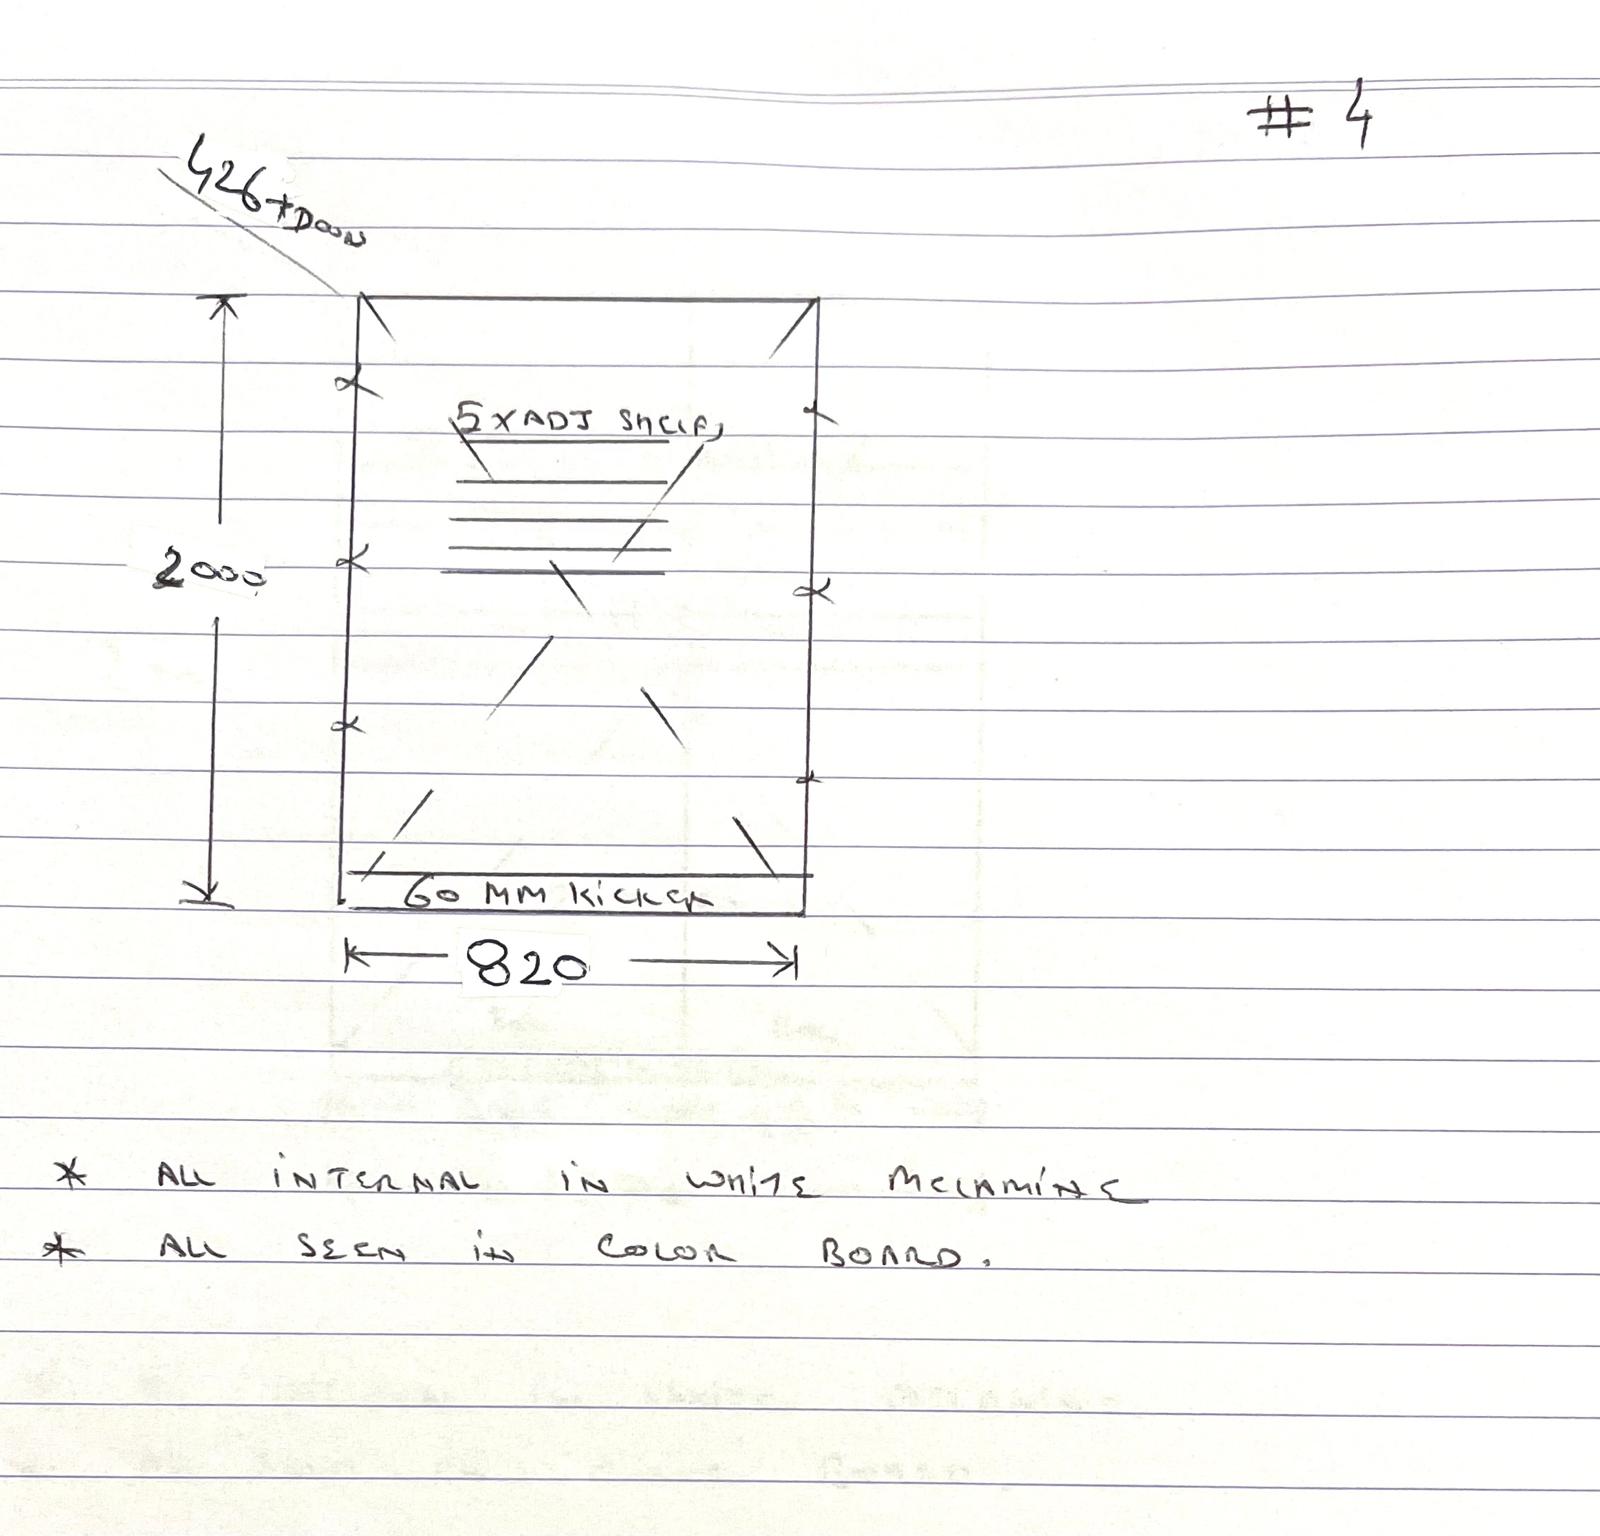 # 4
426 + DOOR
5 X ADJ SHELF,
2000
60 MM KICKER
820
* ALL INTERNAL IN WHITE MELAMINE
* ALL SEEN IN COLOR BOARD.